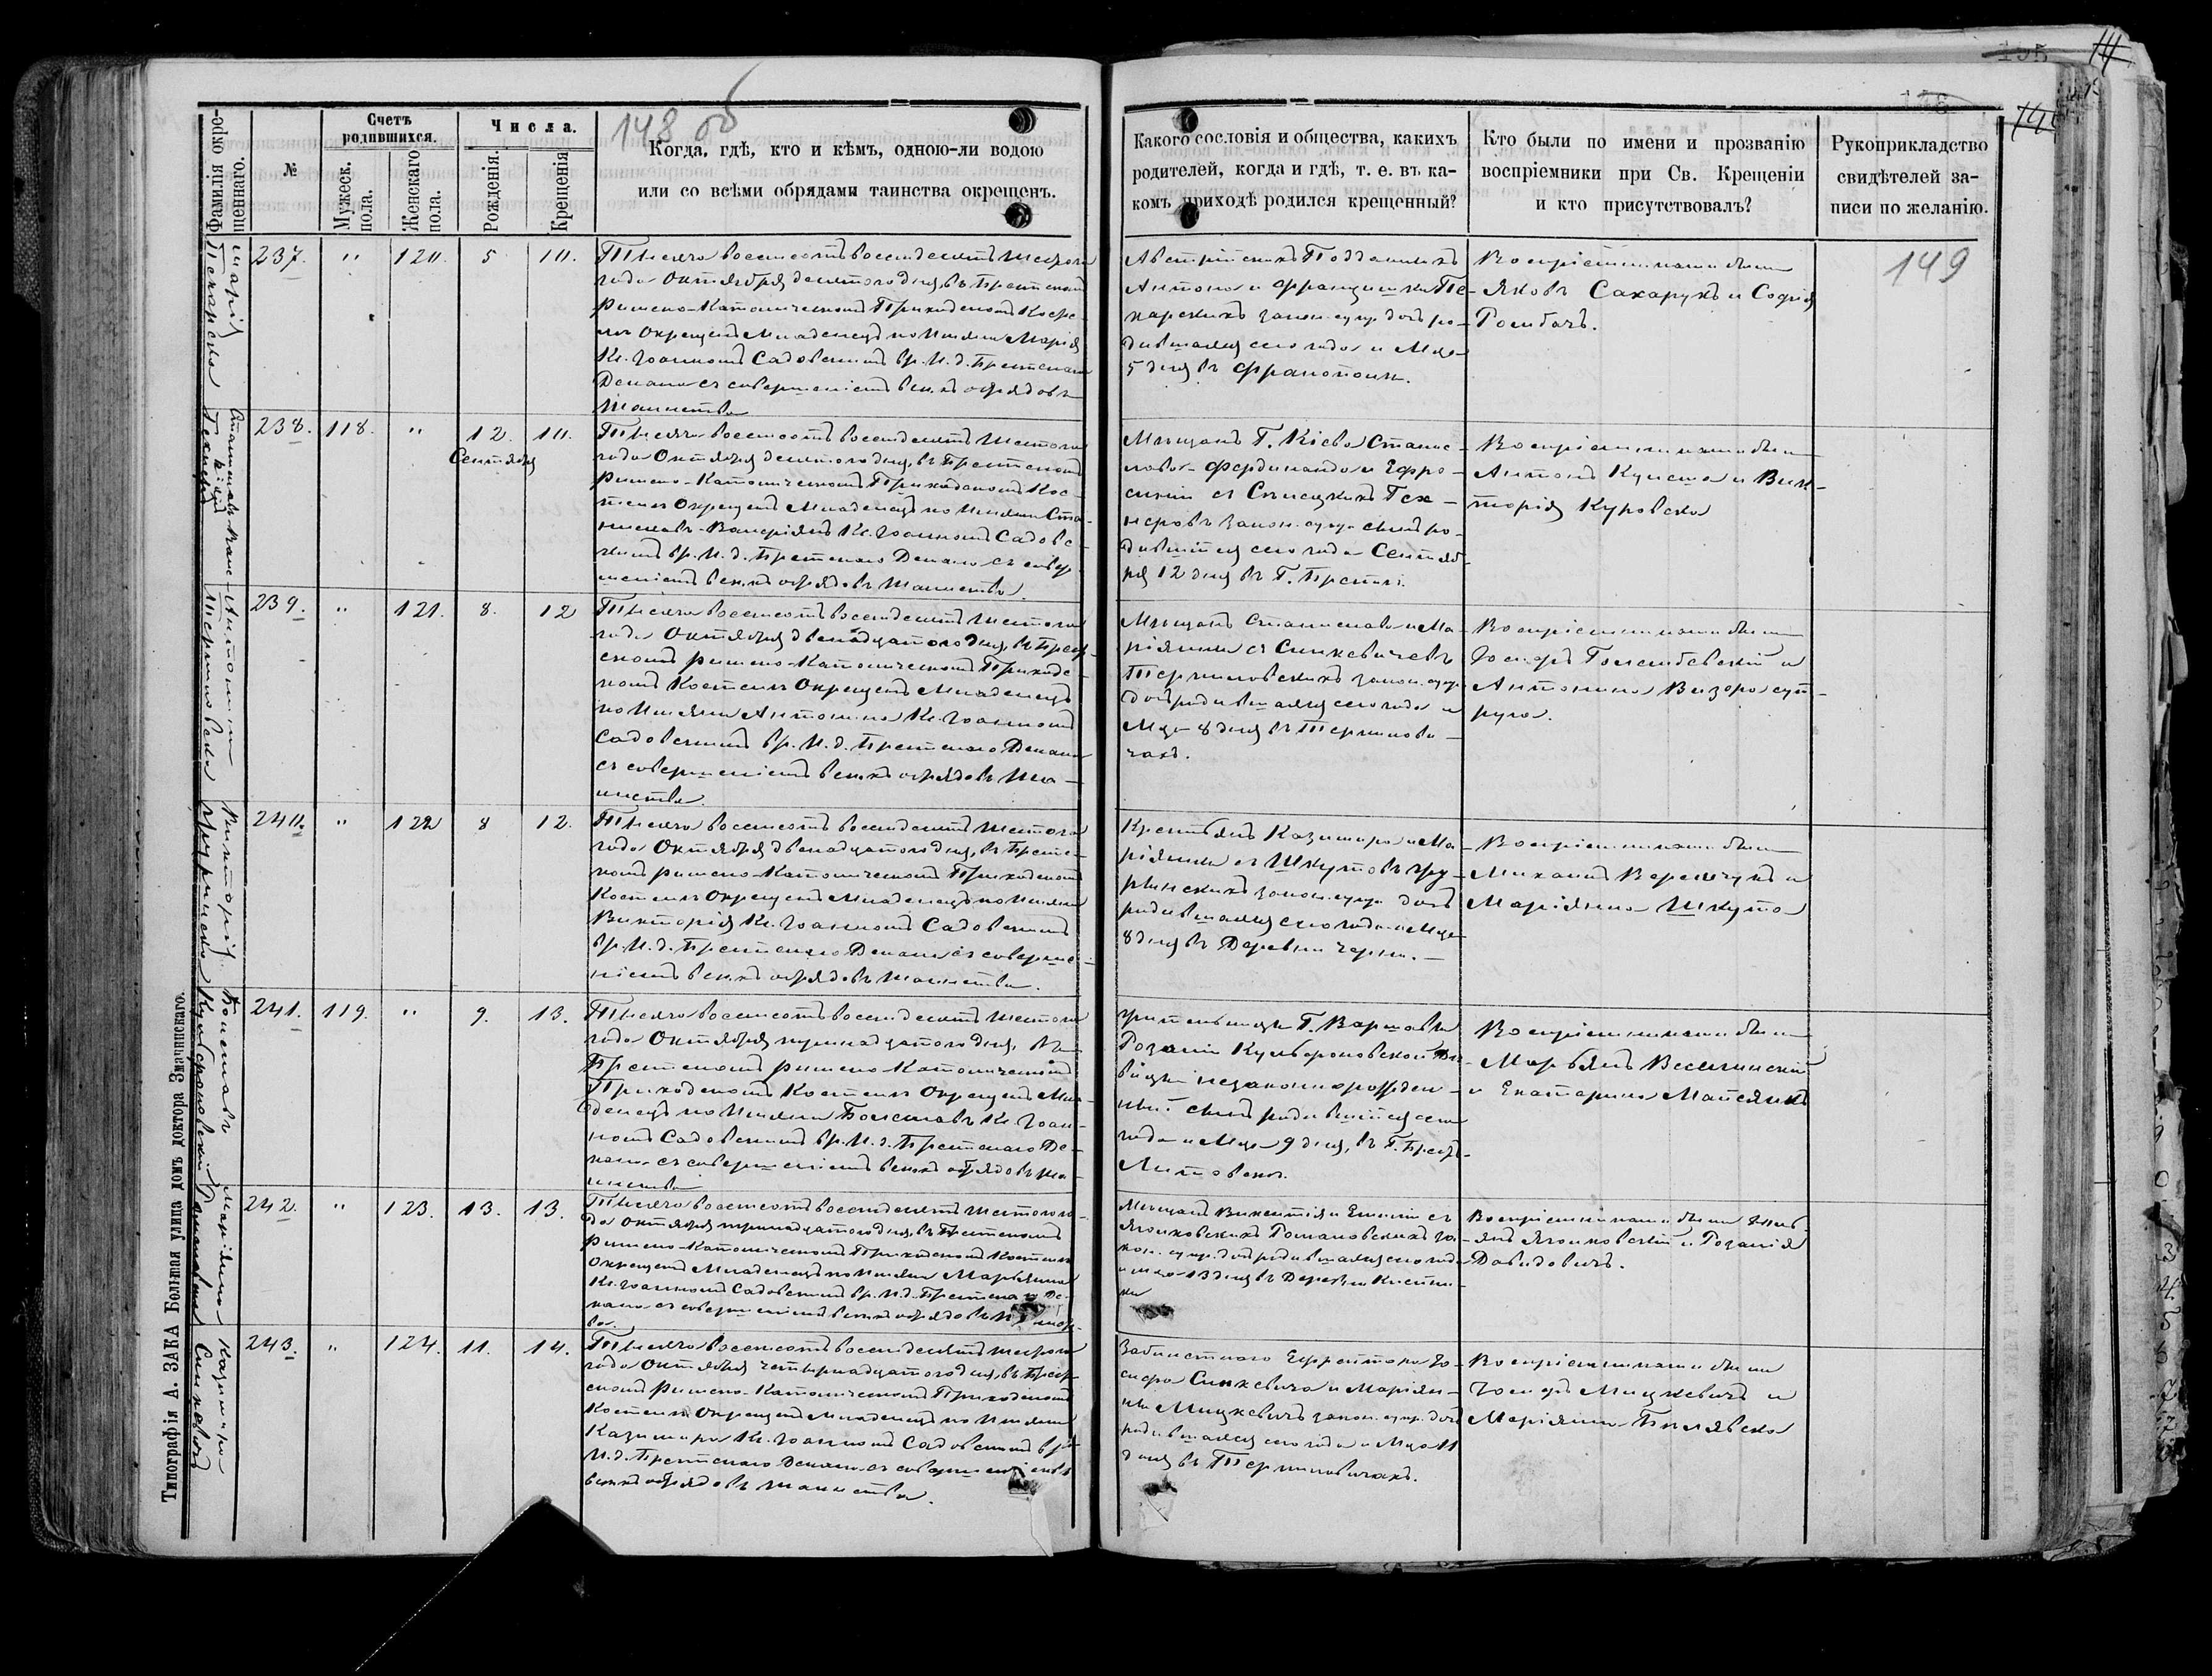 148 об
149
Фамилія окре-
щеннаго.
№
Счетъ
родившихся.
Мужеск.
пола.
Женскаго
пола.
Числа.
Рожденія.
Крещенія
Когда, гдѣ, кто и кѣмъ, одною-ли водою
или со всѣми обрядами таинства окрещенъ.
Какого сословія и общества, какихъ
родителей, когда и гдѣ, т. е. въ ка-
комъ приходѣ родился крещенный?
Кто были по имени и прозванію
воспріемники при Св. Крещеніи
и кто присутствовалъ?
Рукоприкладство
свидѣтелей за-
писи по желанію.
Марія
237. " 120. 5 10.
Тысяча восемсотъ восемдесятъ шестого
года Октября десятого дня, въ Брестскомъ
Римско-Католическомъ Приходскомъ Косте-
лѣ Окрещенъ Младенецъ по Имени Марія
Кс. Іоанномъ Садовскимъ вр. И. д. Брестскаго
Декана съ совершеніемъ всѣхъ обрядовъ
таинства
Австрійскихъ Подданныхъ
Антона и Францишки Пе-
карскихъ закон. супр. дочь ро-
дившаяся сего года и Мца
5 дня въ Франополѣ.
Воспріемниками были
Яковъ Сахарукъ и Софія
Гольбахъ.
238. 118. " 12. 10.
Сентября
Тысяча восемсотъ восемдесятъ шестого
года Октября десятого дня, въ Брестскомъ
Римско-Католическомъ Приходскомъ Кос-
телѣ Окрещенъ Младенецъ по Имени Ста-
ниславъ-Валеріянъ Кс. Іоанномъ Садовс-
кимъ вр. И. д. Брестскаго Декана съ совер-
шеніемъ всѣхъ обрядовъ таинства.
Мѣщанъ Г. Кіева Станис-
лава-Фердинанда и Ефро-
синіи съ Гех-
неровъ закон. супр. сынъ ро-
дившійся сего года Сентяб-
ря 12 дня въ Г. Брестѣ.
Воспріемниками были
Антонъ и Вик-
торія Куровска
Антонина
239. " 121. 8. 12
Тысяча восемсотъ восемдесятъ шестого
года Октября двенадцатого дня, въ Брест-
скомъ Римско-Католическомъ Приходс-
комъ Костелѣ Окрещенъ Младенецъ
по Имени Антонина Кс. Іоанномъ
Садовскимъ вр. И. д. Брестскаго Декана
съ совершеніемъ всѣхъ обрядовъ та-
инства.
Мѣщанъ Станислава и Ма-
ріянны съ Синкевичевъ
закон. супр.
дочь родившаяся сего года и
Мца 8 дня въ
Воспріемниками были
Іосифъ Голембевскій и
Антонина Визоро суп-
руга.
Викторія
240. " 122 8 12.
Тысяча восемсотъ восемдесятъ шестого
года Октября двенадцатого дня, въ Брестс-
комъ Римско-Католическомъ Приходскомъ
Костелѣ Окрещенъ Младенецъ по Имени
Викторія Кс. Іоанномъ Садовскимъ
вр. И. д. Брестскаго Декана съ соверше-
ніемъ всѣхъ обрядовъ таинства.
Крестьянъ Казимира и Ма-
ріянны съ Шкутовъ
закон. супр. дочь
родившаяся сего года и Мца
8 дня въ Деревни Черни.
Воспріемниками были
Михаилъ Веремчукъ и
Маріянна Шкута
Болеславъ
241. 119. " 9. 13.
Тысяча восемсотъ восемдесятъ шестого
года Октября тринадцатого дня, въ
Брестскомъ Римско Католическомъ
Приходскомъ Костелѣ Окрещенъ Мла-
денецъ по Имени Болеславъ Кс. Іоан-
номъ Садовскимъ вр. И. д. Брестскаго Де-
кана съ совершеніемъ всѣхъ обрядовъ та-
инства
Жительницы Г. Варшавы
Розаліи дѣ-
вицы незаконнорожден-
ный сынъ родившійся сего
года и Мца 9 дня, въ Г. Брестъ-
Литовскѣ.
Воспріемниками были
Марьянъ
и Екатерина
Маріянна
242. " 123. 13. 13.
Тысяча восемсотъ восемдесятъ шестого го-
да Октября тринадцатого дня, въ Брестскомъ
Римско-Католическомъ Приходскомъ Костелѣ
Окрещенъ Младенецъ по Имени Марьянна
Кс. Іоанномъ Садовскимъ вр. И. д. Брестскаго Де-
кана съ совершеніемъ всѣхъ обрядовъ
Мѣщанъ Викентія и Емиліи съ
Ягелковскихъ Романовскихъ за-
кон. супр. дочь родившаяся сего года
и мца 13 дня въ Деревни
Воспріемниками были
Ягелковскій и Розалія
Давидовичъ.
Казимира
243. " 124. 11. 14.
Тысяча восемсотъ восемдесятъ шестого
года Октября четырнадцатого дня, въ Брест-
скомъ Римско-Католическомъ Приходскомъ
Костелѣ Окрещенъ Младенецъ по Имени
Казимира Кс. Іоанномъ Садовскимъ вр
И. д. Брестскаго Декана съ совершеніемъ
всѣхъ обрядовъ таинства.
Ефрейтора Іо-
сифа Синкевича и Маріян-
ны Мицкевичъ закон. супр. дочь
родившаяся сего года и Мца 11
дня въ
Воспріемниками были
Іосифъ Мицкевичъ и
Маріянна Билявска
Типографія А. ЗАКА Большая улица домъ доктора Змачинскаго.